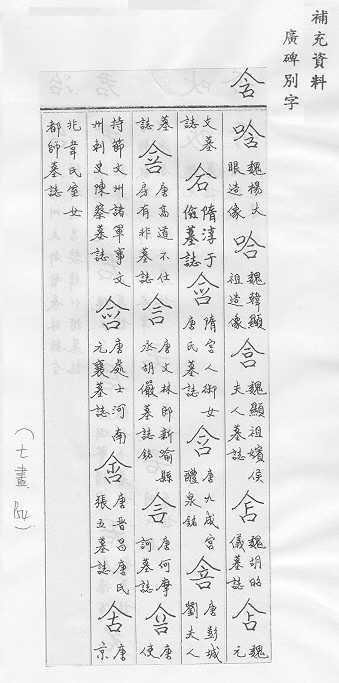 補充資料
廣碑別字
含
唅 魏楊大眼造像 哈 魏韓顯祖造像 魏顯祖嬪侯夫人墓誌 魏胡昭儀墓誌 魏元
文墓誌 隋淳于儉墓誌 隋宮人御女唐氏墓誌 唐九成宮醴泉銘 唐彭城劉夫人
墓誌 唐高道不仕房有非墓誌 唐文林郎新喻縣丞胡儼墓誌銘 唐何摩訶墓誌 唐使
持節文州諸軍事文州刺史陳察墓誌 唐處士河南元襄墓誌 唐晉昌唐氏張五墓誌 唐京
兆韋氏室女都師墓誌
(七畫 154)